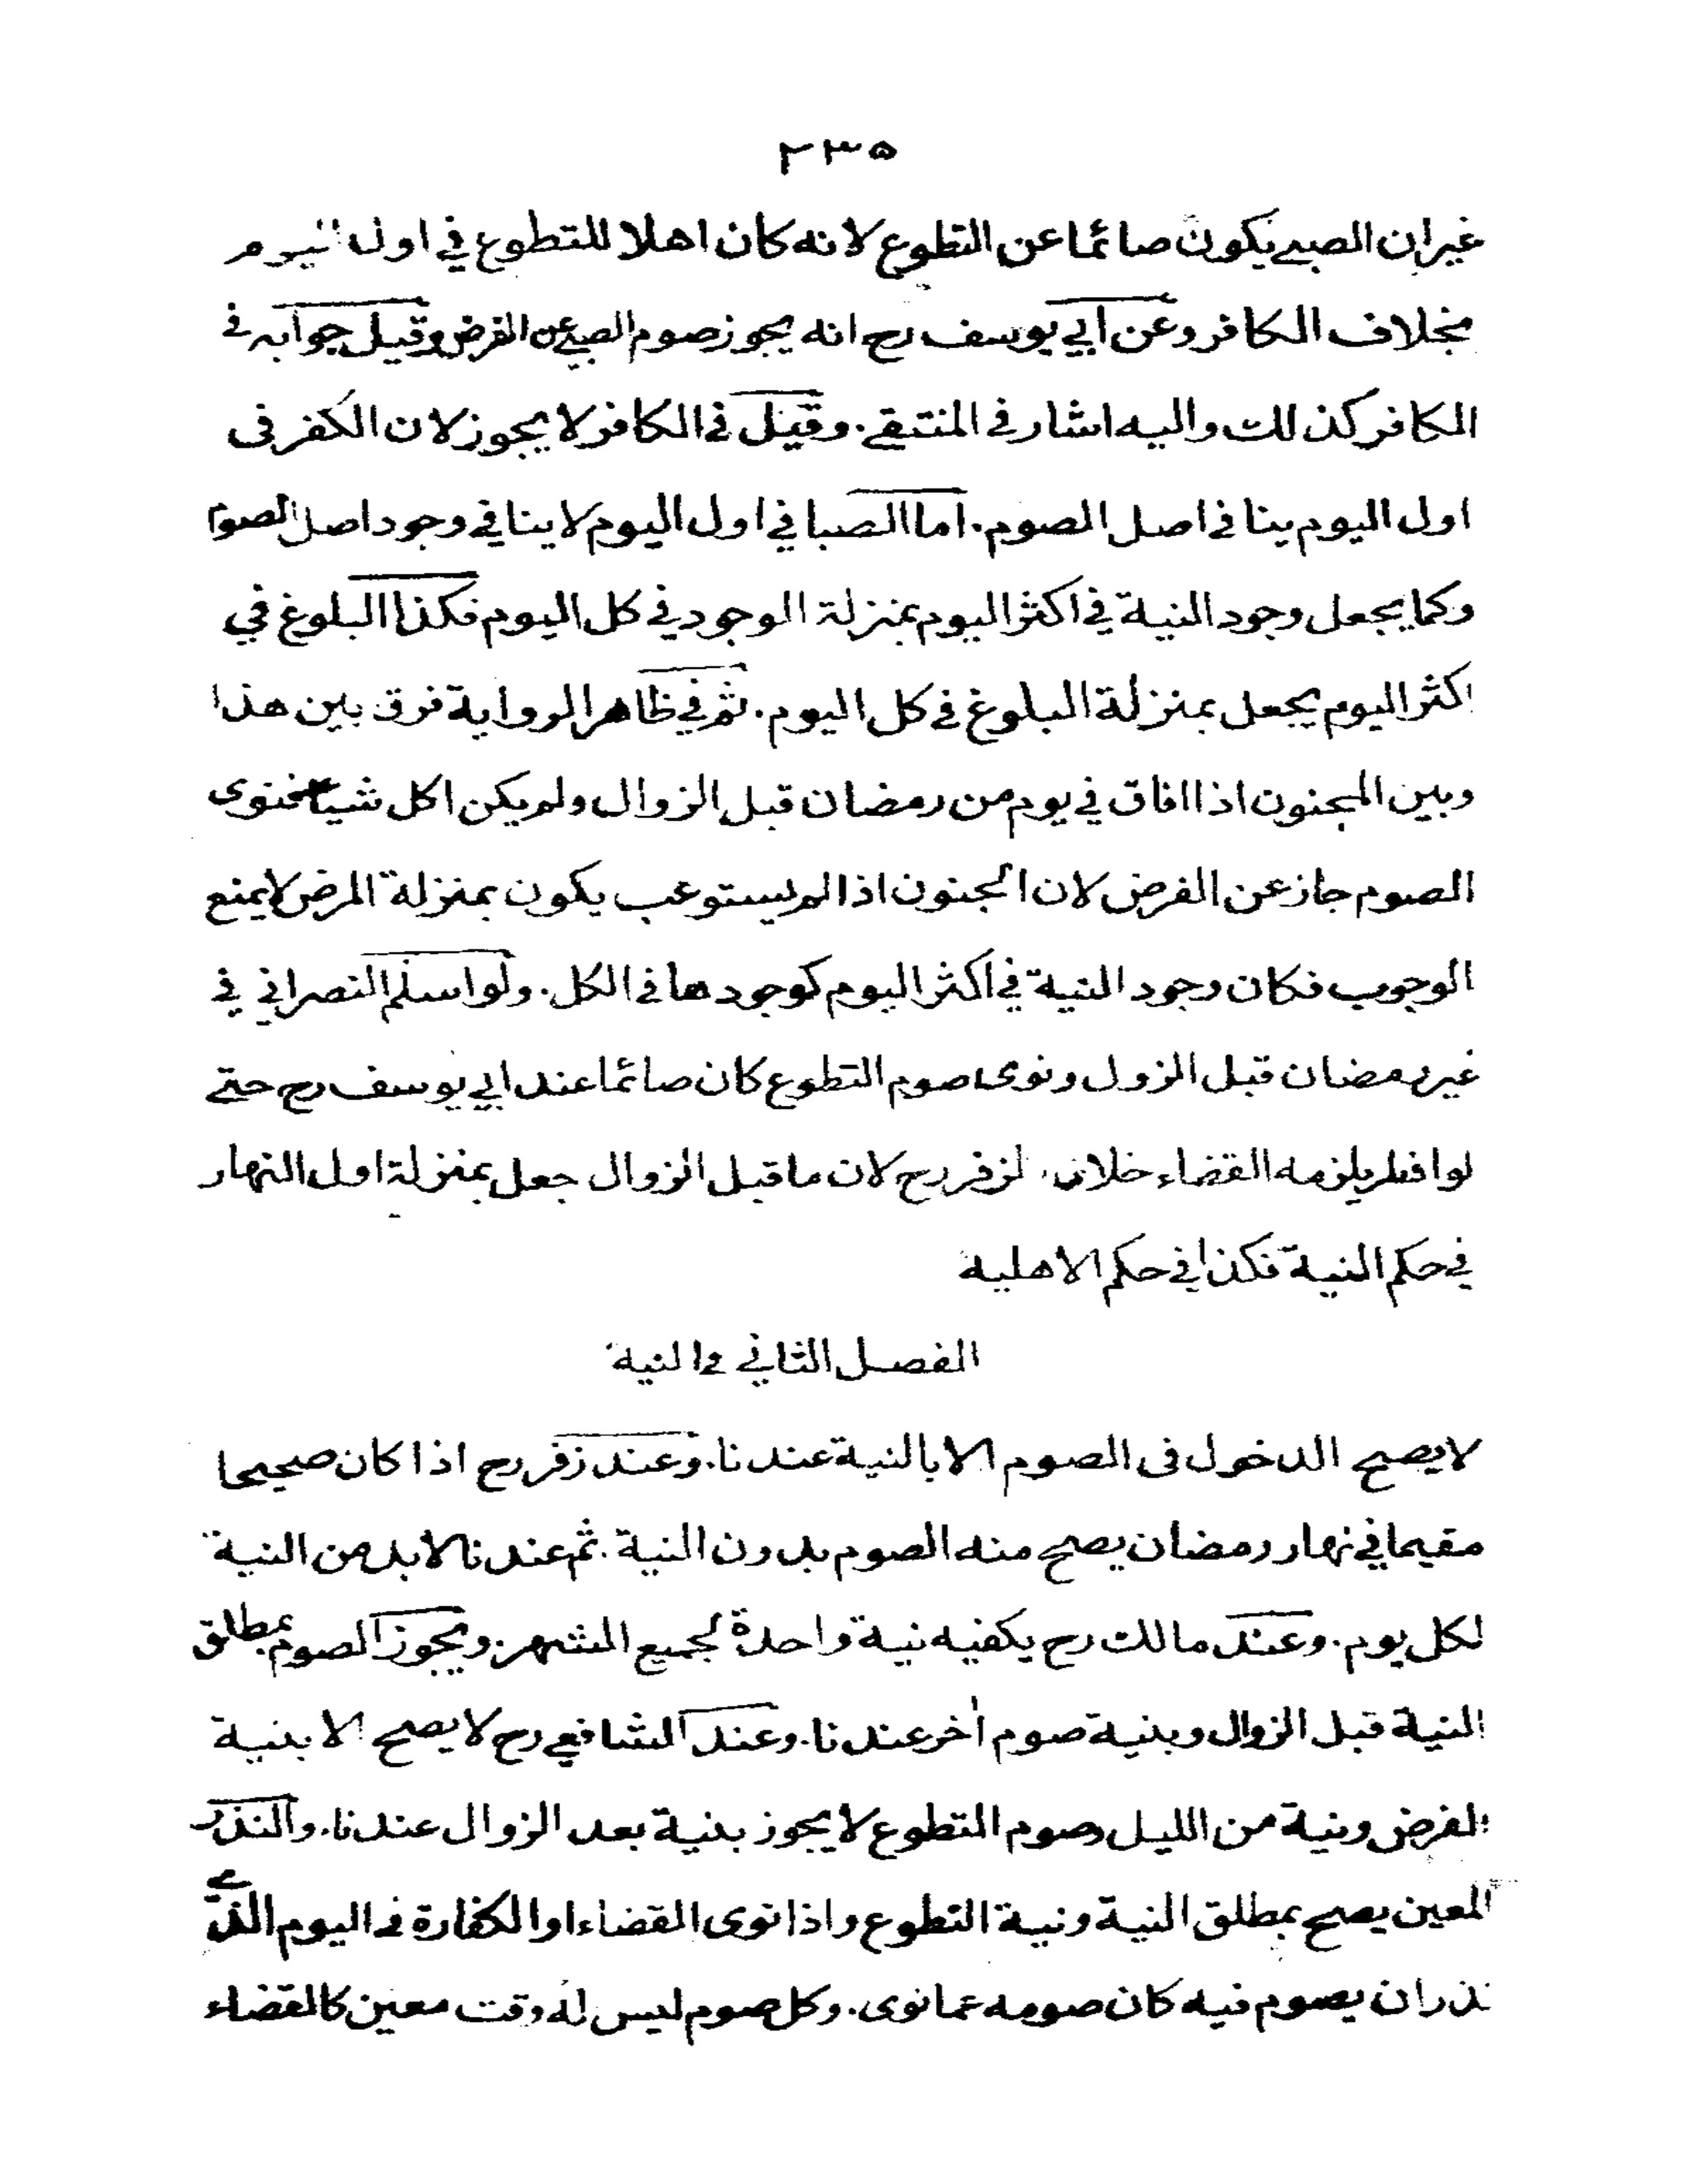 ٢٣٥
غير ان الصبي يكون صائما عن التطوع لانه كان اهلا للتطوع في اول اليوم
بخلاف الكافر وعن ابي يوسف رح انه يجوز صوم الصبي عن الفرض وقيل جوابه في
الكافر كذلك واليه اشار في المنتقى. وقيل في الكافر لا يجوز لان الكفر في
اول اليوم ينافي اصل الصوم. اما الصبا في اول اليوم لا ينافي وجود اصل الصوم
وكما يجعل وجود النية في اكثر اليوم بمنزلة الوجود في كل اليوم فكذا البلوغ في
اكثر اليوم يجعل بمنزلة البلوغ في كل اليوم. ثم في ظاهر الرواية فرق بين هذا
وبين المجنون اذا افاق في يوم من رمضان قبل الزوال ولم يكن اكل شيئا فنوى
الصوم جاز عن الفرض لان الجنون اذا لم يستوعب يكون بمنزلة المرض لا يمنع
الوجوب فكان وجود النية في اكثر اليوم كوجودها في الكل. ولو اسلم النصراني في
غير رمضان قبل الزول ونوى صوم التطوع كان صائما عند ابي يوسف رح حتى
لو افطر يلزمه القضاء خلافا لزفر رح لان ما قبل الزوال جعل بمنزلة اول النهار
في حكم النية فكذا في حكم الاهلية
الفصل الثاني في النية
لا يصح الدخول فى الصوم الا بالنية عندنا. وعند زفر رح اذا كان صحيحا
مقيما في نهار رمضان يصح منه الصوم بدون النية. ثم عندنا لا بد من النية
لكل يوم. وعند مالك رح يكفيه نية واحدة لجميع الشهر. ويجوز الصوم بمطلق
النية قبل الزوال وبنية صوم اخر عندنا. وعند الشافعي رح لا يصح الا بنية
الفرض ونية من الليل وصوم التطوع لا يجوز بنية بعد الزوال عندنا. والنذر
المعين يصح بمطلق النية ونية التطوع واذا نوى القضاء او الكفارة في اليوم الذي
نذر ان يصوم فيه كان صومه عما نوى. وكل صوم ليس له وقت معين كالقضاء